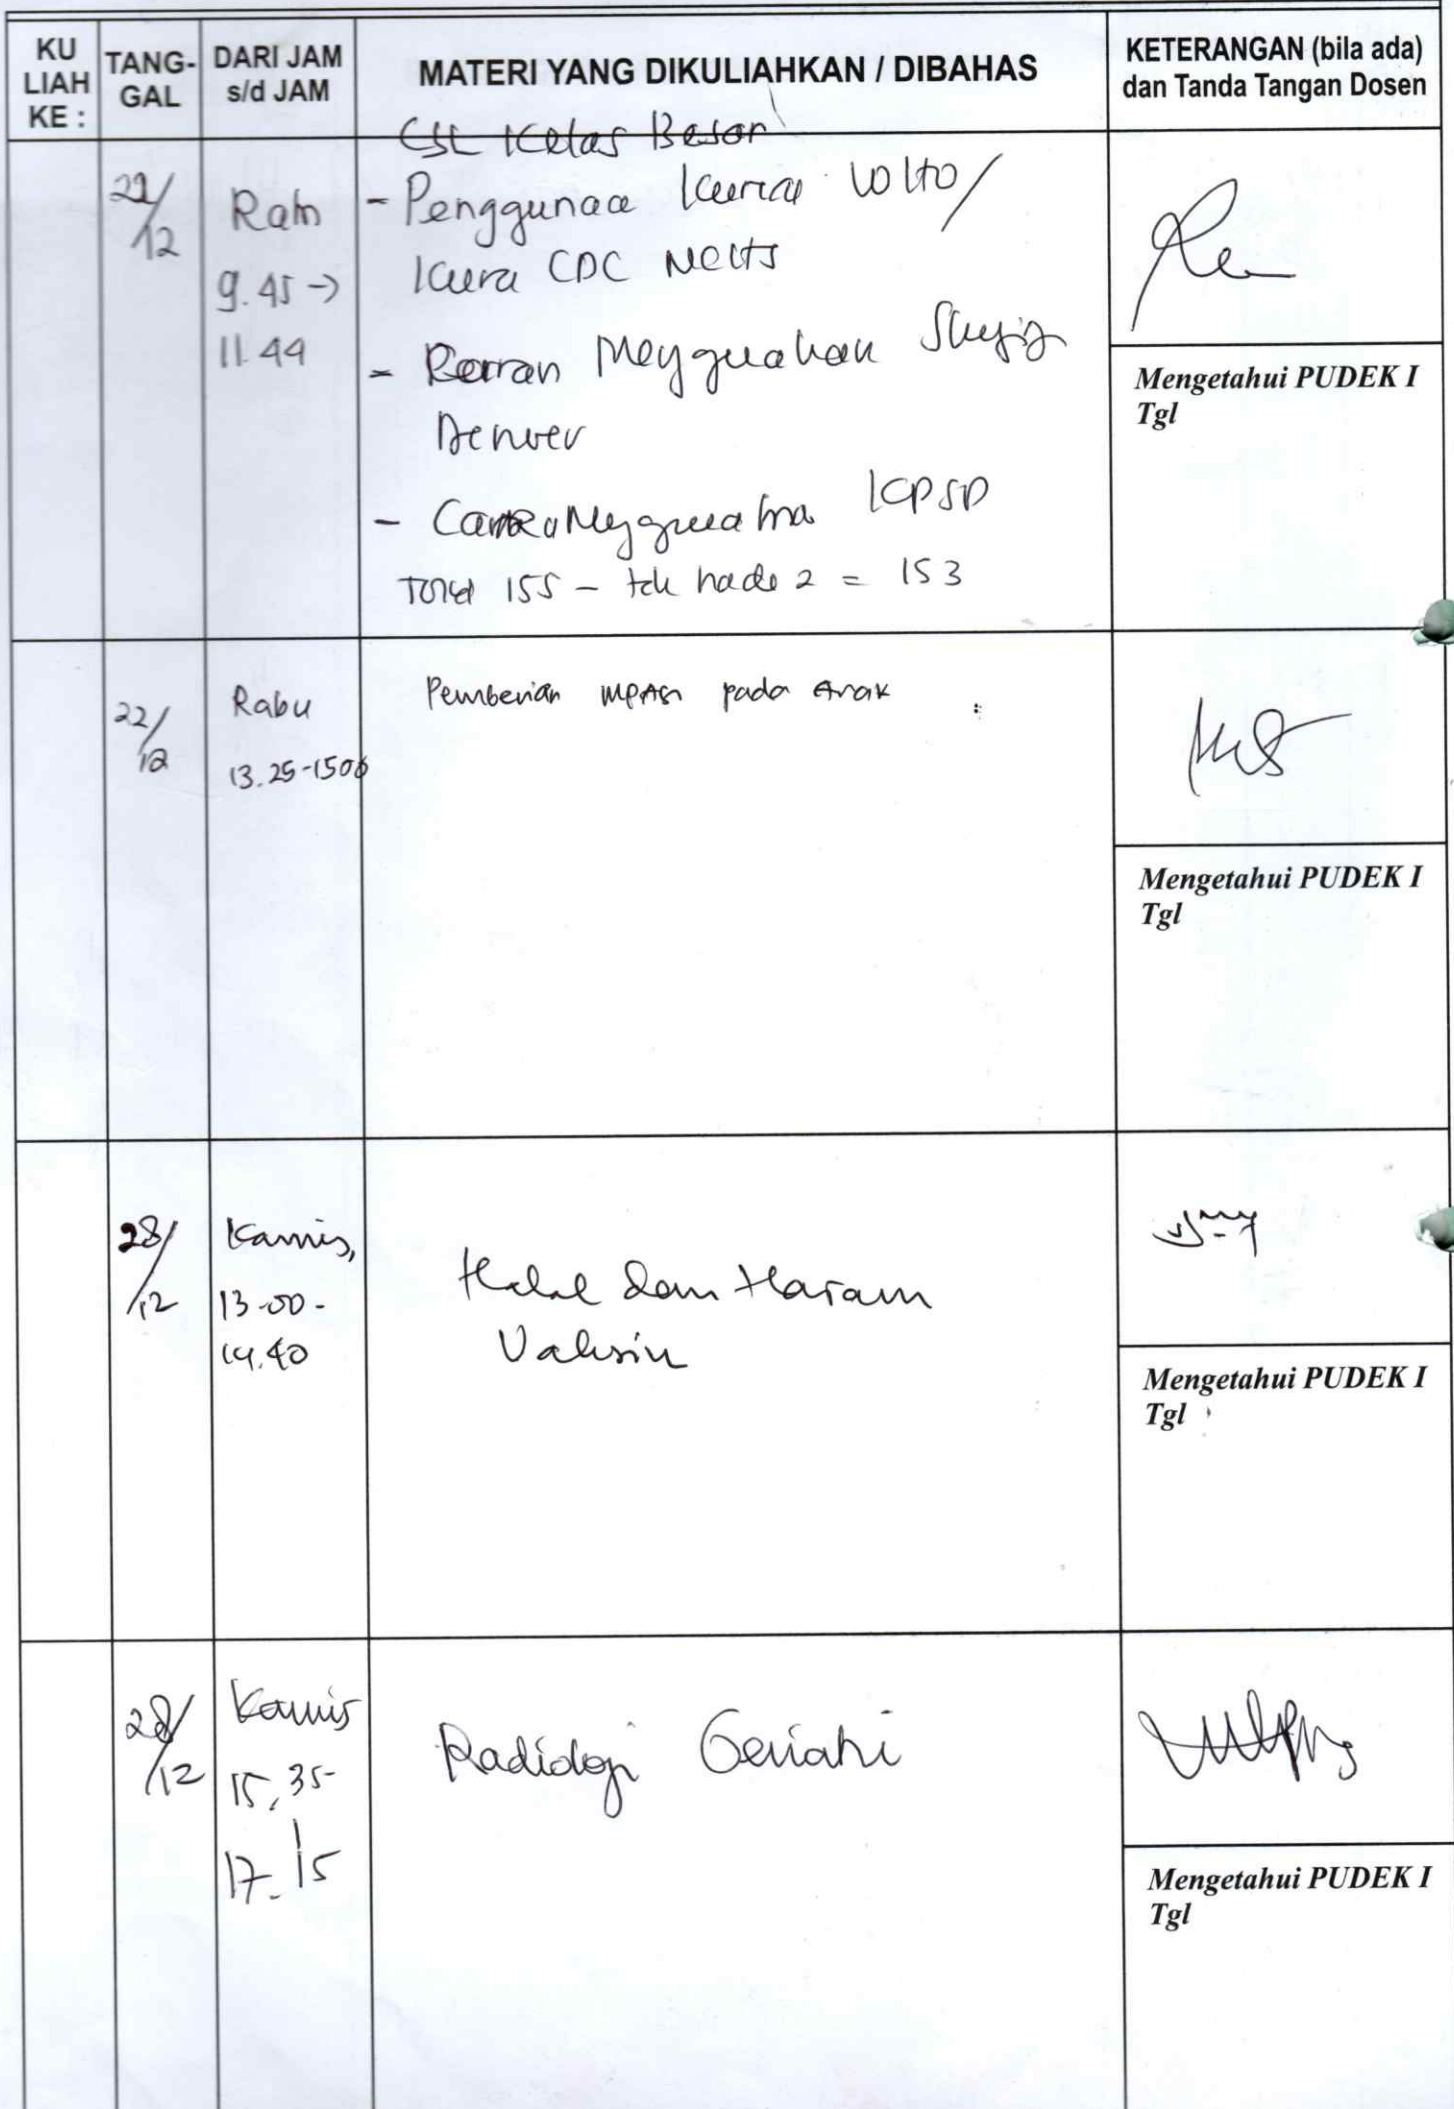 KU LIAH KE :
TANG- GAL
DARI JAM s/d JAM
MATERI YANG DIKULIAHKAN / DIBAHAS
KETERANGAN (bila ada) dan Tanda Tangan Dosen
CSL Kelas Besar
/12
9.45 →
11.44
- Penggunaa Kurva WHO/
Kurva CDC
-
Denver
- KPSP
Total 155 - tdk hadi 2 = 153
Mengetahui PUDEK I
Tgl
22/12
Rabu
13.25-1500
Pemberian MPASI pada Anak
Mengetahui PUDEK I
Tgl
28/12
Kamis,
13.00-
14.40
Halal dan Haram
Vaksin
Mengetahui PUDEK I
Tgl
28/12
Kamis
15,35-
17.15
Radiologi Geriatri
Mengetahui PUDEK I
Tgl